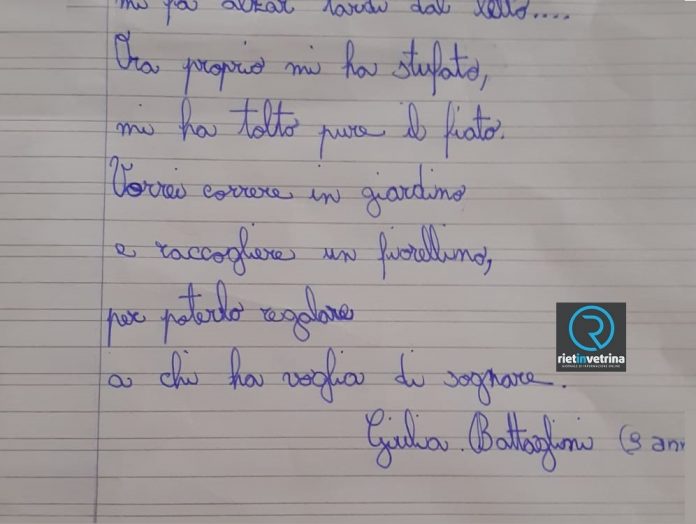 mi fa alzar tardi dal letto....
Ora proprio mi ha stufato,
mi ha tolto pure il fiato.
Vorrei correre in giardino
e raccogliere un fiorellino,
per poterlo regalare
a chi ha voglia di sognare.
Giulia. Battaglini (9 ann
rietinvetrina
GIORNALE DI INFORMAZIONE ONLINE